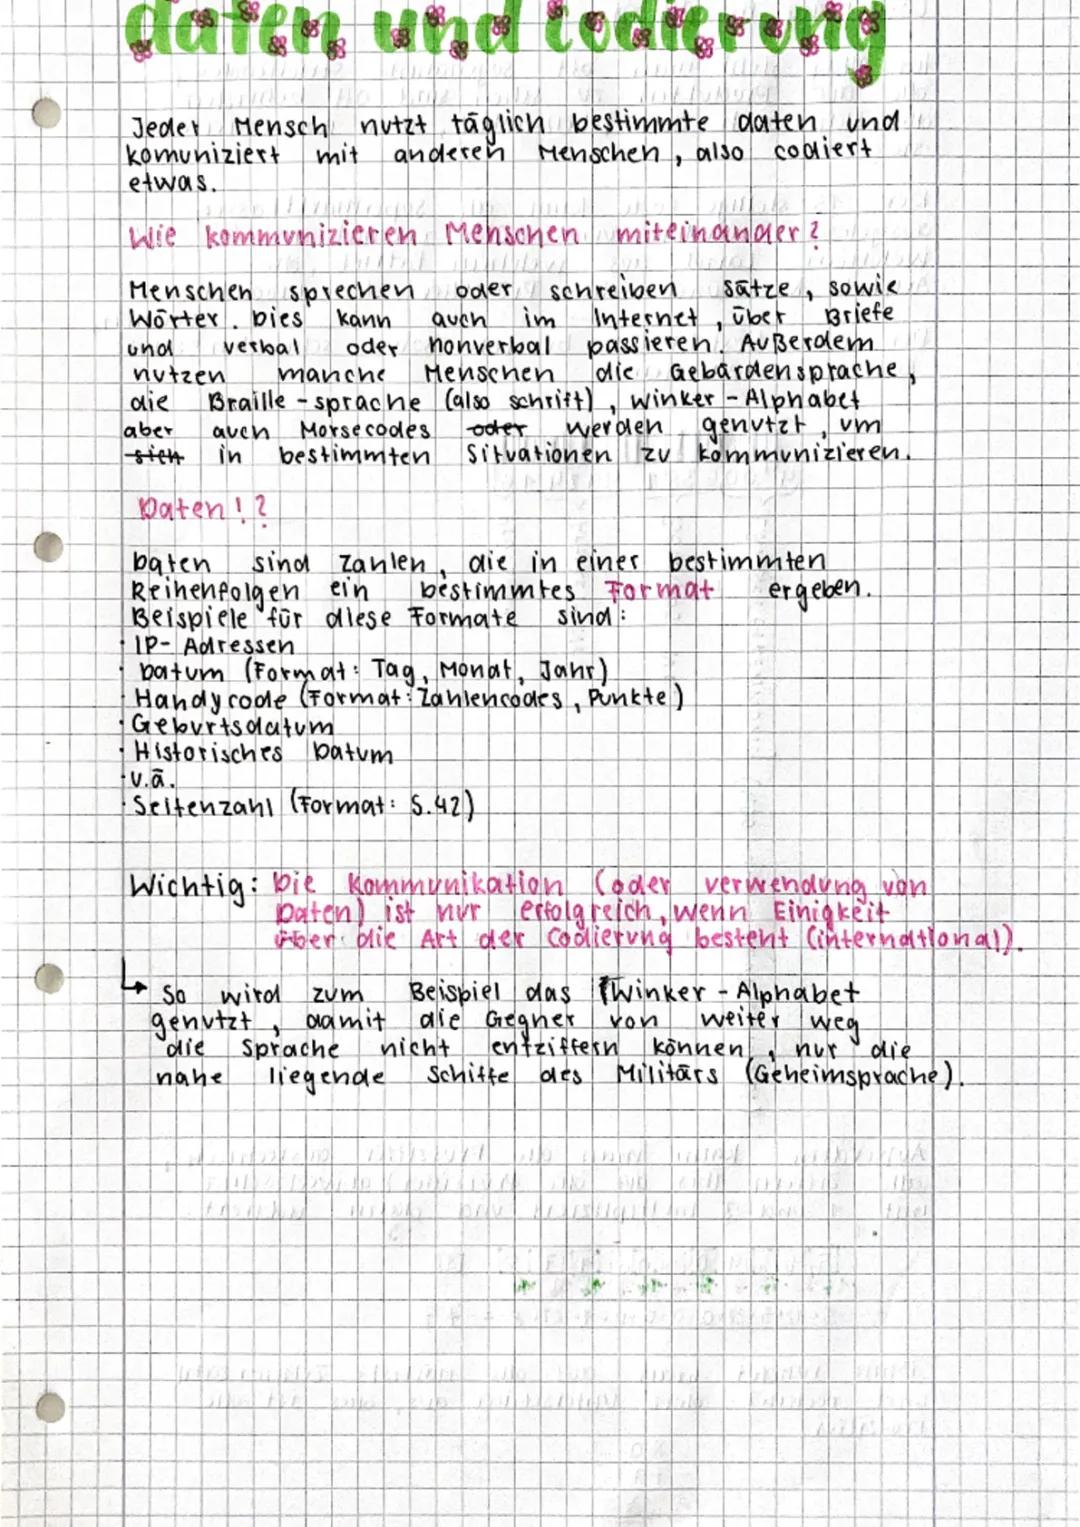 daten und codierung
Jeder Mensch nutzt täglich bestimmte daten und
komuniziert mit anderen Menschen, also codiert
etwas.
Wie kommunizieren Menschen miteinander?
Menschen sprechen oder schreiben sätze, sowie
Wörter. Dies kann auch im Internet, über Briefe
und verbal oder nonverbal passieren. Außerdem
nutzen manche Menschen die Gebärdensprache,
die Braille-sprache (also schrift), winker-Alphabet
aber auch Morsecodes oder werden genutzt, um
sich in bestimmten Situationen zu kommunizieren.
Daten!?
Daten sind Zahlen, die in einer bestimmten
Reihenfolgen ein bestimmtes Format ergeben.
Beispiele für diese Formate sind:
· IP-Adressen
· Datum (Format: Tag, Monat, Jahr)
· Handycode (Format: Zahlencodes, Punkte)
· Geburtsdatum
· Historisches Datum
· u.ä.
· Seitenzahl (Format: S.42)
Wichtig: Die Kommunikation (oder verwendung von
Daten) ist nur erfolgreich, wenn Einigkeit
über die Art der Codierung besteht (international).
↳ So wird zum Beispiel das Winker-Alphabet
genutzt, damit die Gegner von weiter weg
die Sprache nicht entziffern können, nur die
nahe liegende Schiffe des Militärs (Geheimsprache).